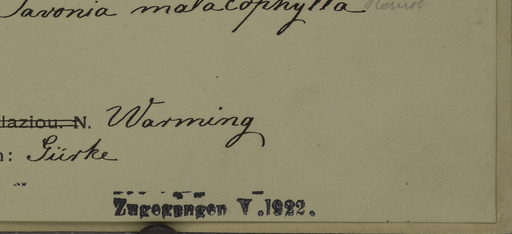 Pavonia malacophylla
laziou. N. Warming
n: Gürke
Zugegangen V.1922.